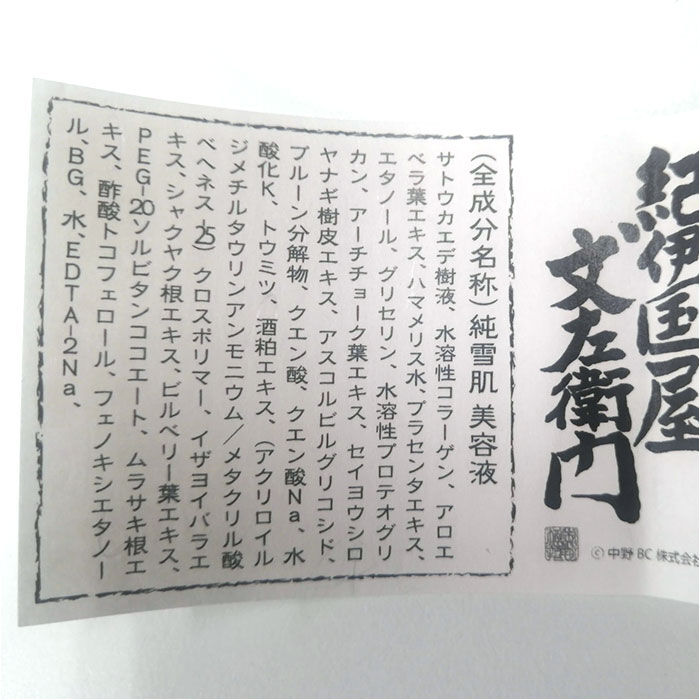 紀伊国屋
文左衛門
©中野BC株式会社
(全成分名称)純雪肌 美容液
サトウカエデ樹液、水溶性コラーゲン、アロエ
ベラ葉エキス、ハマメリス水、プラセンタエキス、
エタノール、グリセリン、水溶性プロテオグリ
カン、アーチチョーク葉エキス、セイヨウシロ
ヤナギ樹皮エキス、アスコルビルグリコシド、
プルーン分解物、クエン酸、クエン酸Na、水
酸化K、トウミツ、酒粕エキス、(アクリロイル
ジメチルタウリンアンモニウム/メタクリル酸
ベヘネス-25)クロスポリマー、イザヨイバラエ
キス、シャクヤク根エキス、ビルベリー葉エキス、
PEG-20ソルビタンココエート、ムラサキ根エ
キス、酢酸トコフェロール、フェノキシエタノー
ル、BG、水、EDTA-2Na、